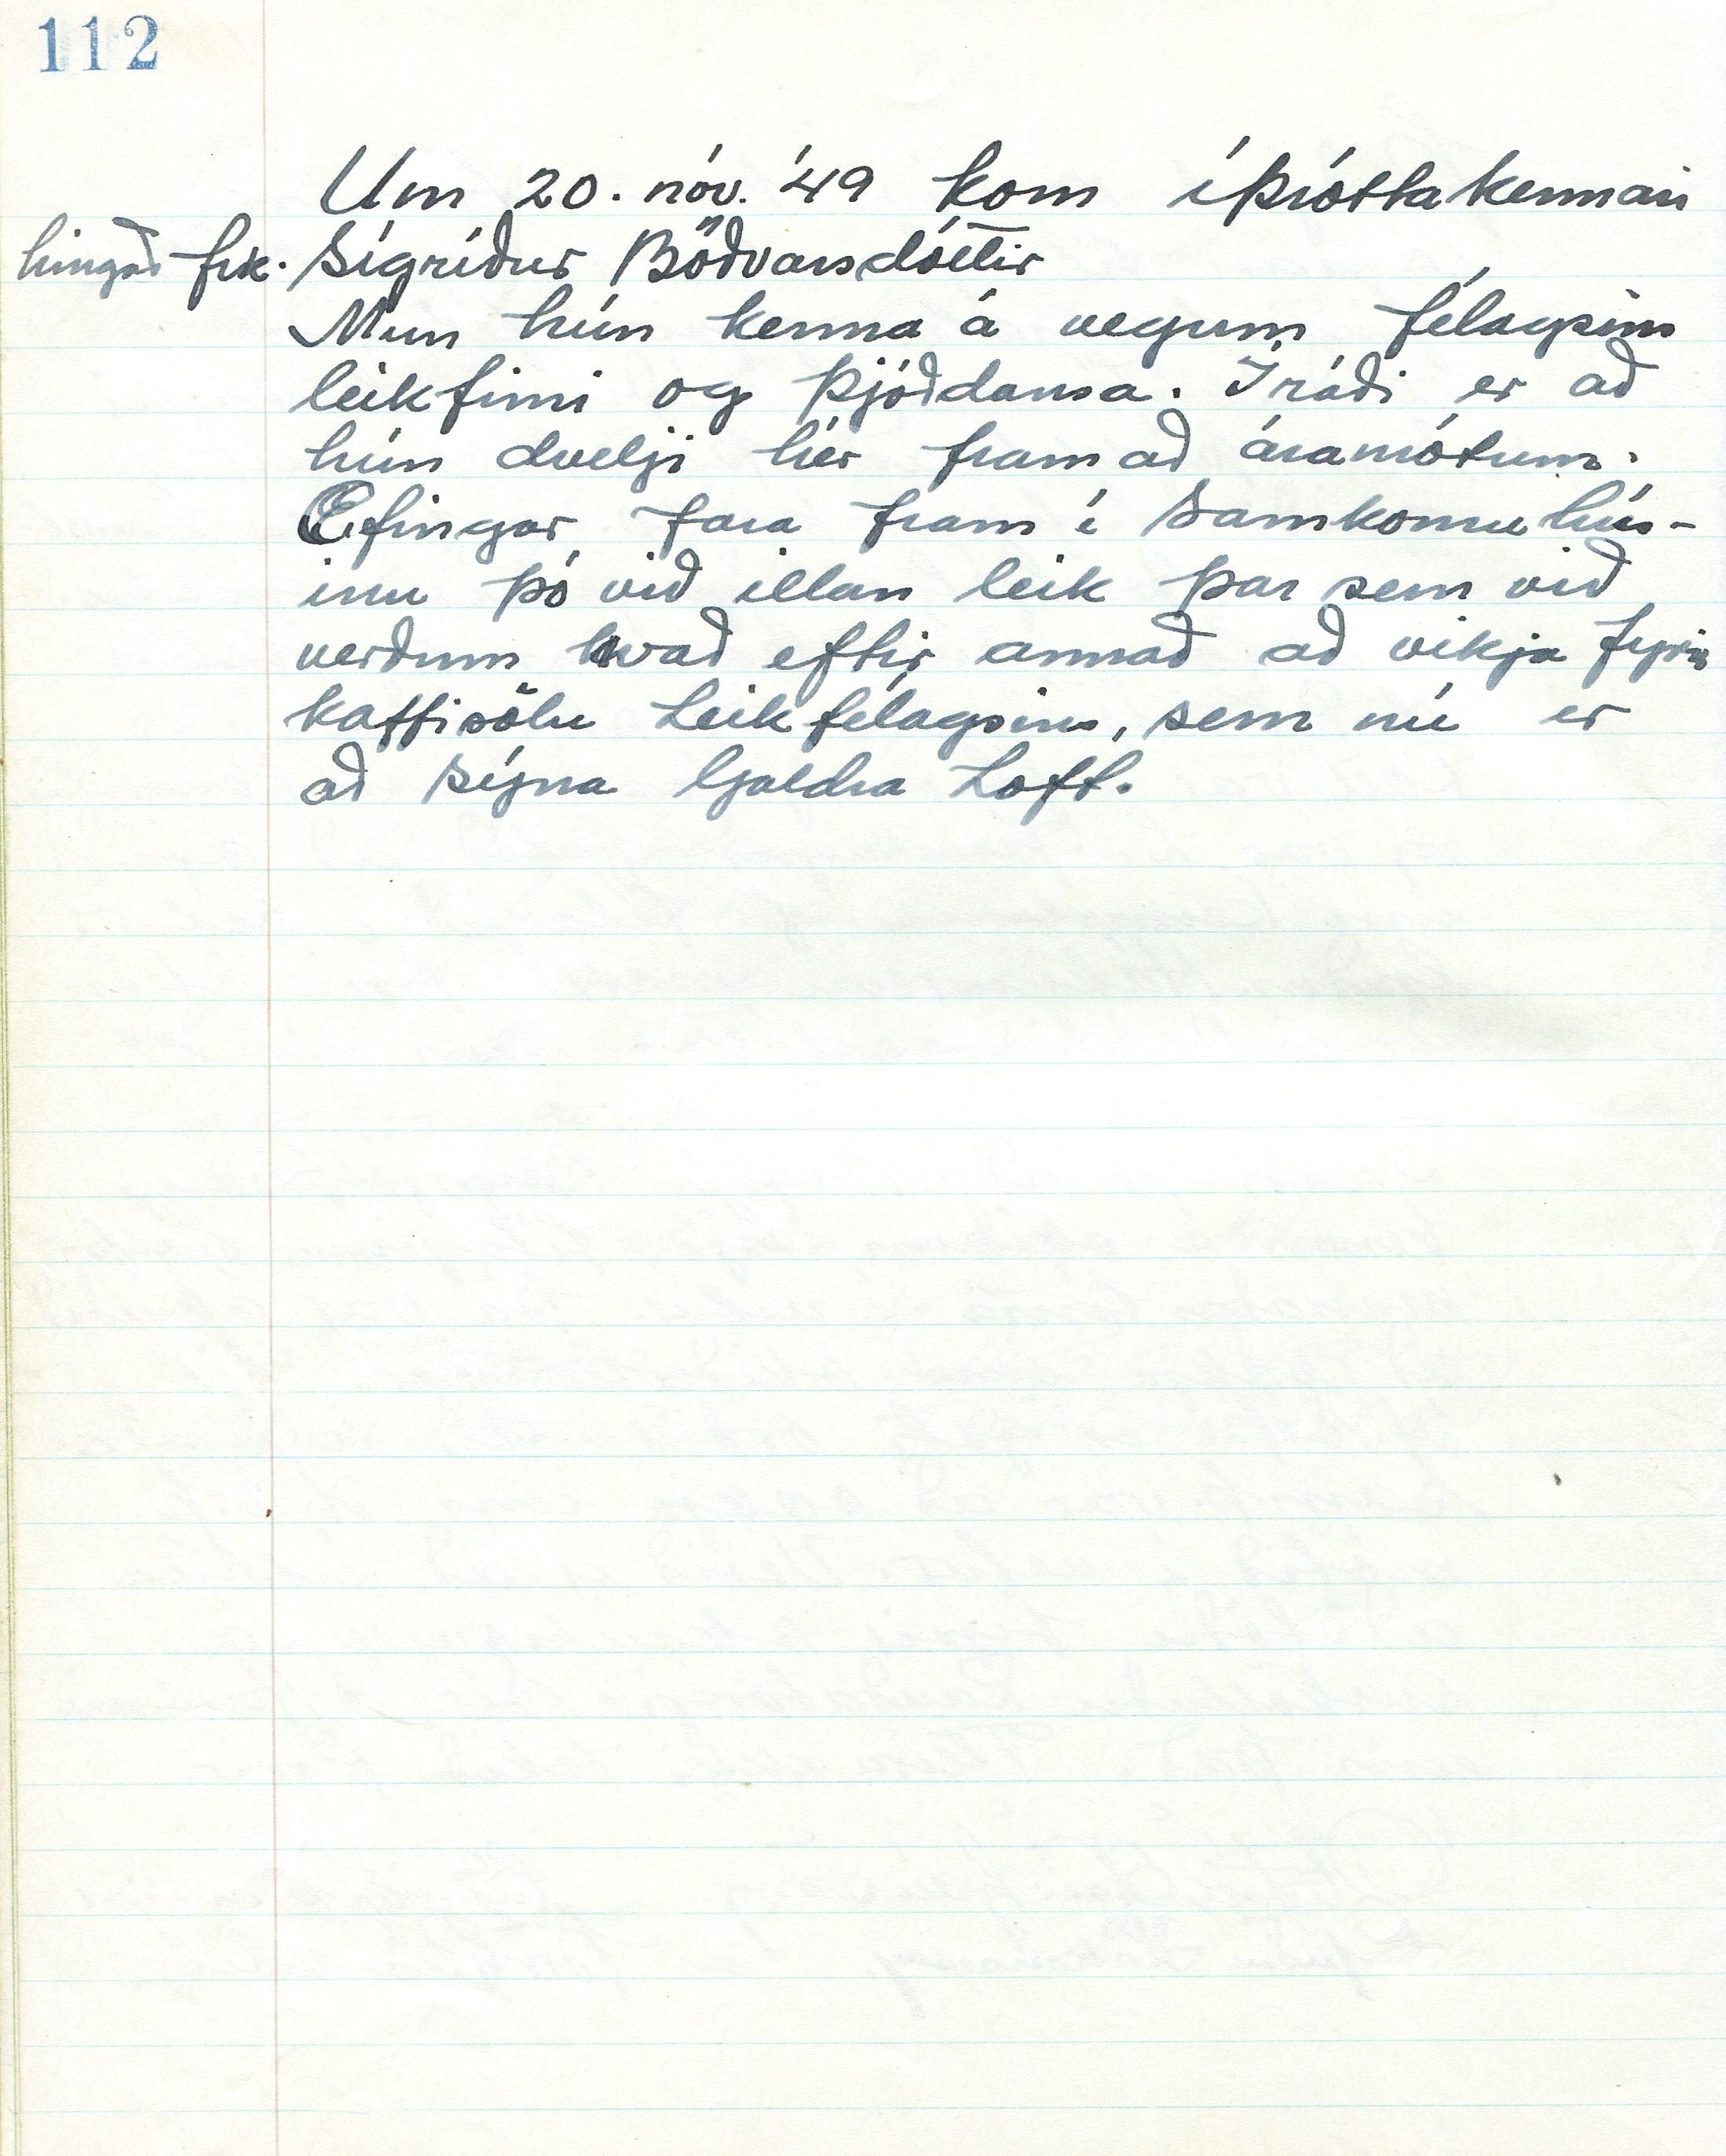 112
Um 20. nóv. '49 kom íþróttakennari
hingað frk. Sigríður Böðvarsdóttir
Mun hún kenna á vegum félagsins
leikfimi og þjóðdansa. Í ráði er að
hún dvelji hér fram að áramótum.
Efingar fara fram í Samkomuhús-
inu þó við illan leik þar sem við
verðum hvað eftir annað að víkja fyrir
kaffisölu Leikfélagsins, sem nú er
að sýna Galdra Loft.